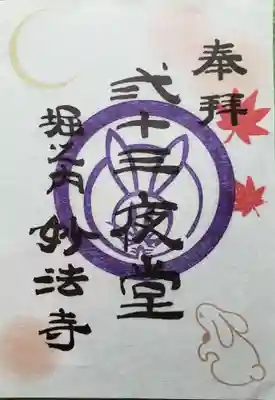 奉拝
弐十三夜堂
堀之内 妙法寺